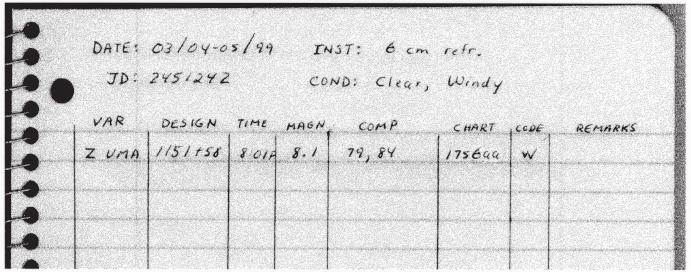 DATE: 03/04-05/99 INST: 6 cm refr.
JD: 2451242 COND: Clear, Windy
VAR DESIGN TIME MAGN. COMP CHART CODE REMARKS
Z UMA 1151+58 8:01P 8.1 79, 84 1756aa W